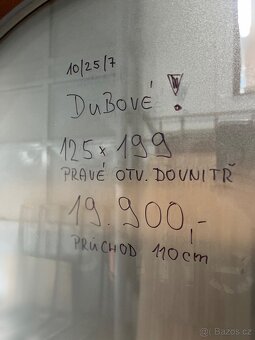 10/25/7
DUBOVÉ !
125 x 199
PRAVÉ OTV. DOVNITŘ
19.900,-
PRŮCHOD 110cm
© Bazos.cz